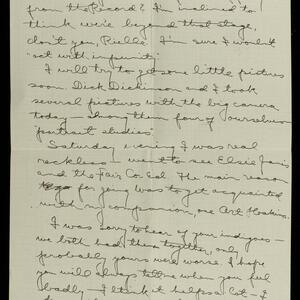 from the Record? I'm inclined to
think we're beyond that stage,
don't you, Rielle. I'm sure I wouldn't
"act with impunity".
I will try to get some little pictures
soon. Dick Dickinson and I took
several pictures with the big camera
today – among them four of ourselves
"portrait studies"
Saturday evening I was real
reckless – went to see Elsie Janis
and the Fair Co Ed. The main reason
for going was to get acquainted
with my companion, one Art Hoskins.
I was sorry to hear of your indigoes –
we both had them together, only
probably yours were worse. I hope
you will always tell me when you feel
badly – I think it helps a lot – I